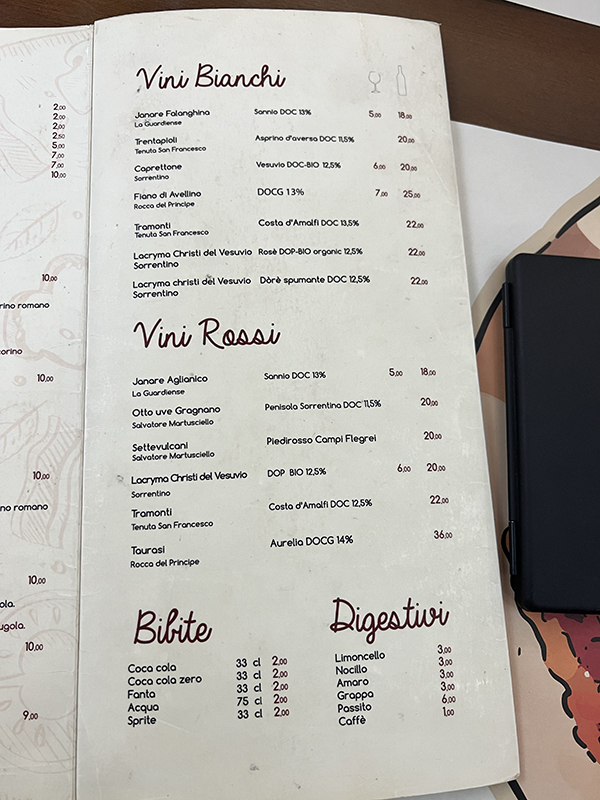 2,00
2,00
2,00
2,50
5,00
7,00
7,00
10,00
10,00
rino romano
orino
10,00
10,00
no romano
10,00
ola.
ugola.
10,00
9,00
Vini Bianchi
Janare Falanghina Sannio DOC 13% 5,00 18,00
La Guardiense
Trentapioli Asprino d'aversa DOC 11,5% 20,00
Tenuta San Francesco
Caprettone Vesuvio DOC-BIO 12,5% 6,00 20,00
Sorrentino
Fiano di Avellino DOCG 13% 7,00 25,00
Rocca del Principe
Tramonti Costa d'Amalfi DOC 13,5% 22,00
Tenuta San Francesco
Lacryma Christi del Vesuvio Rosè DOP-BIO organic 12,5% 22,00
Sorrentino
Lacryma christi del Vesuvio Dòrè spumante DOC 12,5% 22,00
Sorrentino
Vini Rossi
Janare Aglianico Sannio DOC 13% 5,00 18,00
La Guardiense
Otto uve Gragnano Penisola Sorrentina DOC 11,5% 20,00
Salvatore Martusciello
Settevulcani Piedirosso Campi Flegrei 20,00
Salvatore Martusciello
Lacryma Christi del Vesuvio DOP BIO 12,5% 6,00 20,00
Sorrentino
Tramonti Costa d'Amalfi DOC 12,5% 22,00
Tenuta San Francesco
Taurasi Aurelia DOCG 14% 36,00
Rocca del Principe
Bibite
Coca cola 33 cl 2,00
Coca cola zero 33 cl 2,00
Fanta 33 cl 2,00
Acqua 75 cl 2,00
Sprite 33 cl 2,00
Digestivi
Limoncello 3,00
Nocillo 3,00
Amaro 3,00
Grappa 3,00
Passito 6,00
Caffè 1,00